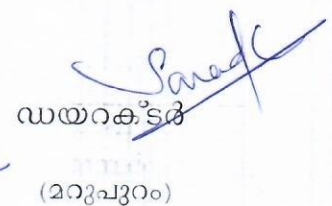 ഡയറക്ടർ
(മറുപുറം)